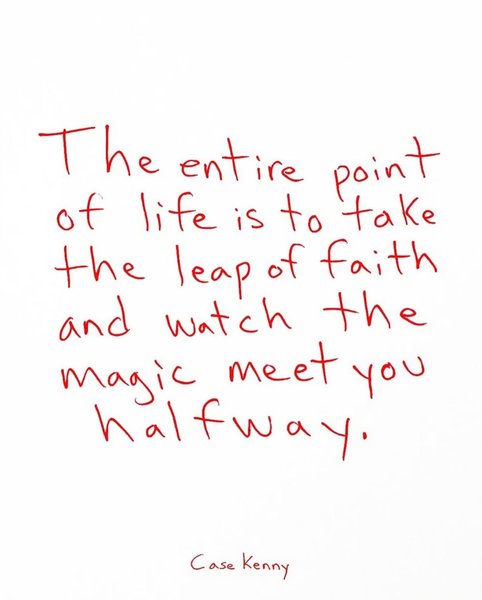 The entire point
of life is to take
the leap of faith
and watch the
magic meet you
halfway.
Case Kenny